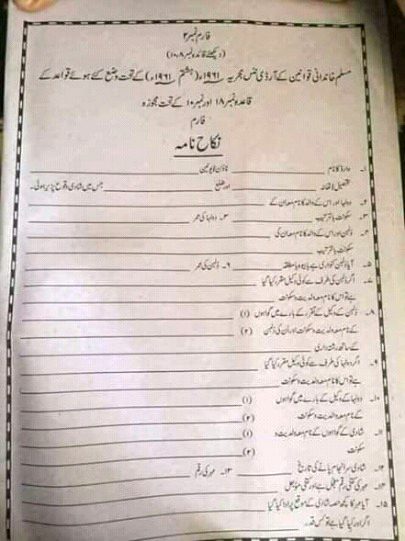 فارم نمبر ۲
(دیکھئے قاعدہ نمبر ۸۔۱۰)
مسلم خاندانی قوانین کے آرڈی ننس مجریہ ۱۹۶۱ء (ہشتم ۱۹۶۱ء) کے تحت وضع کئے ہوئے قواعد کے
قاعدہ نمبر ۸ اور نمبر ۱۰ کے تحت مجوزہ
فارم
نکاح نامہ
۱۔ وارڈ کا نام ٹاؤن / یونین
تحصیل / تھانہ اور ضلع جس میں شادی وقوع پذیر ہوئی۔
۲۔ دولہا اور اس کے والد کا نام معہ ان کے
سکونت بالترتیب ۳۔ دولہا کی عمر
۴۔ دلہن اور اس کے والد کا نام معہ ان کی
سکونت بالترتیب
۵۔ آیا دلہن کنواری ہے یا بیوہ یا مطلقہ ۶۔ دلہن کی عمر
۷۔ اگر دلہن کی طرف سے کوئی وکیل مقرر کیا گیا
ہے تو اس کا نام معہ ولدیت و سکونت
۸۔ دلہن کے وکیل کے تقرر کے بارے میں گواہوں (۱)
کے نام معہ ولدیت و سکونت اور ان کی دلہن (۲)
کے ساتھ رشتہ داری
۹۔ اگر دولہا کی طرف سے کوئی وکیل مقرر کیا گیا
ہے تو اس کا نام معہ ولدیت و سکونت
۱۰۔ دولہا کے وکیل کے بارے میں گواہوں (۱)
کے نام معہ ولدیت و سکونت (۲)
۱۱۔ شادی کے گواہوں کے نام معہ ولدیت و (۱)
سکونت (۲)
۱۲۔ شادی سرانجام پانے کی تاریخ ۱۳۔ مہر کی رقم
۱۴۔ مہر کی کتنی رقم معجل ہے اور کتنی مؤجل
۱۵۔ آیا مہر کا کچھ حصہ شادی کے موقع پر ادا کیا گیا
اگر ادا کیا گیا ہے تو کس قدر